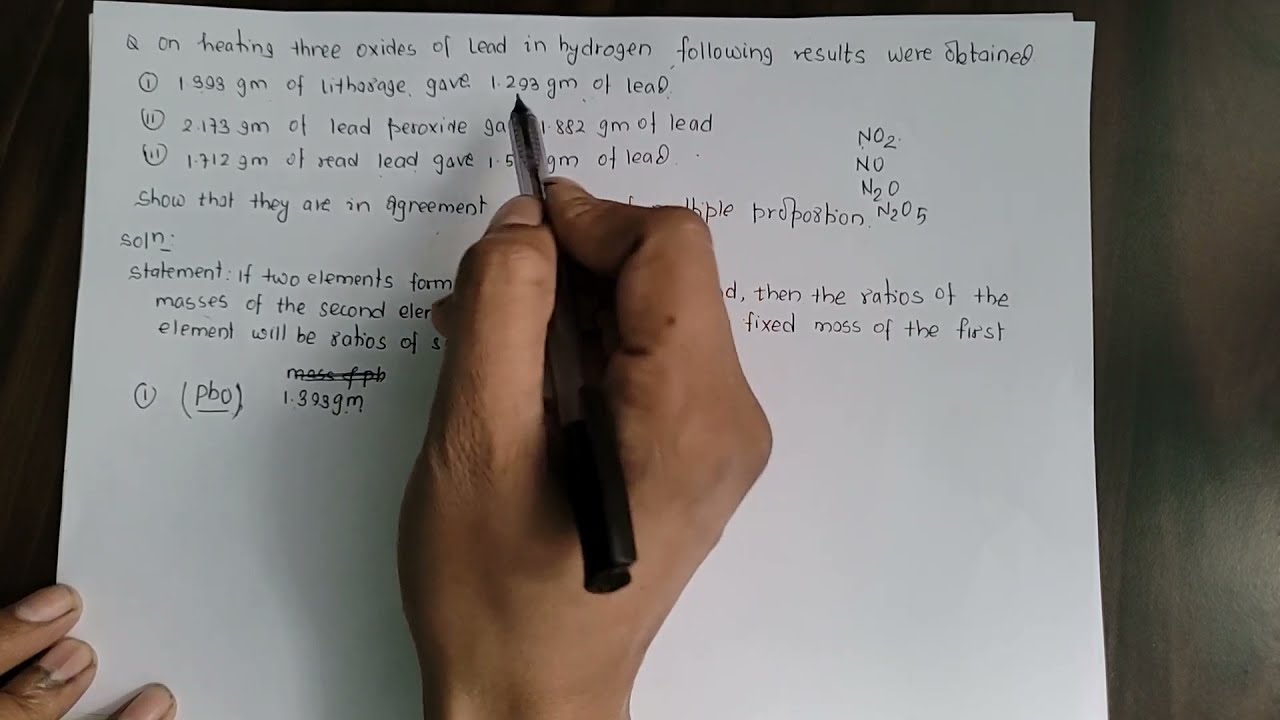 Q on heating three oxides of Lead in hydrogen following results were obtained
① 1.393 gm of lithorage. gave 1.293 gm of lead.
② 2.173 gm of lead peroxide ga 1.882 gm of lead
③ 1.712 gm of read lead gave 1.5 gm of lead.
Show that they are in agreement proportion.
NO2.
NO
N2O
N2O5
soln:
Statement: If two elements form d, then the ratios of the
masses of the second fixed mass of the first
element will be ratios of s
① (PbO) 1.393gm